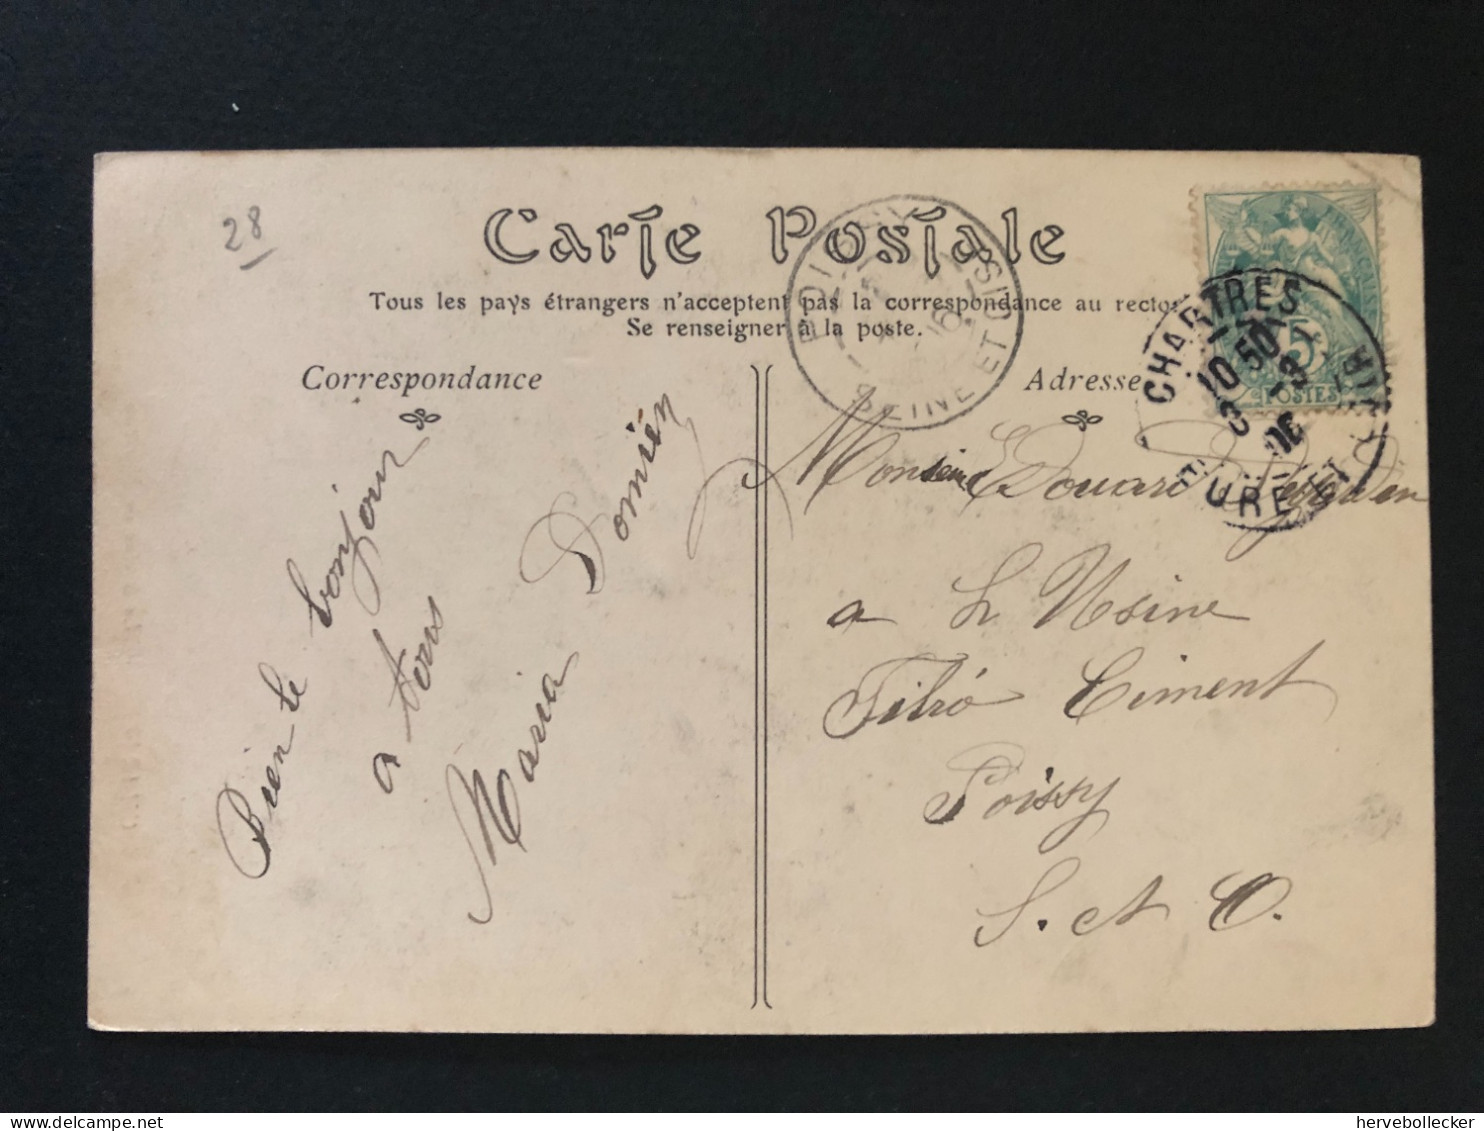 28
Carte Postale
Tous les pays étrangers n'acceptent pas la correspondance au recto.
Se renseigner à la poste.
Correspondance
Adresse
POISSY
SEINE ET OISE
CHARTRES
10 50
06
EURE ET
5
POSTES
Bien le bonjour
a tous
Maria
Monsieur Edouard
a L Usine
Filtro Ciment
Poissy
S. et O.
hervebollecker